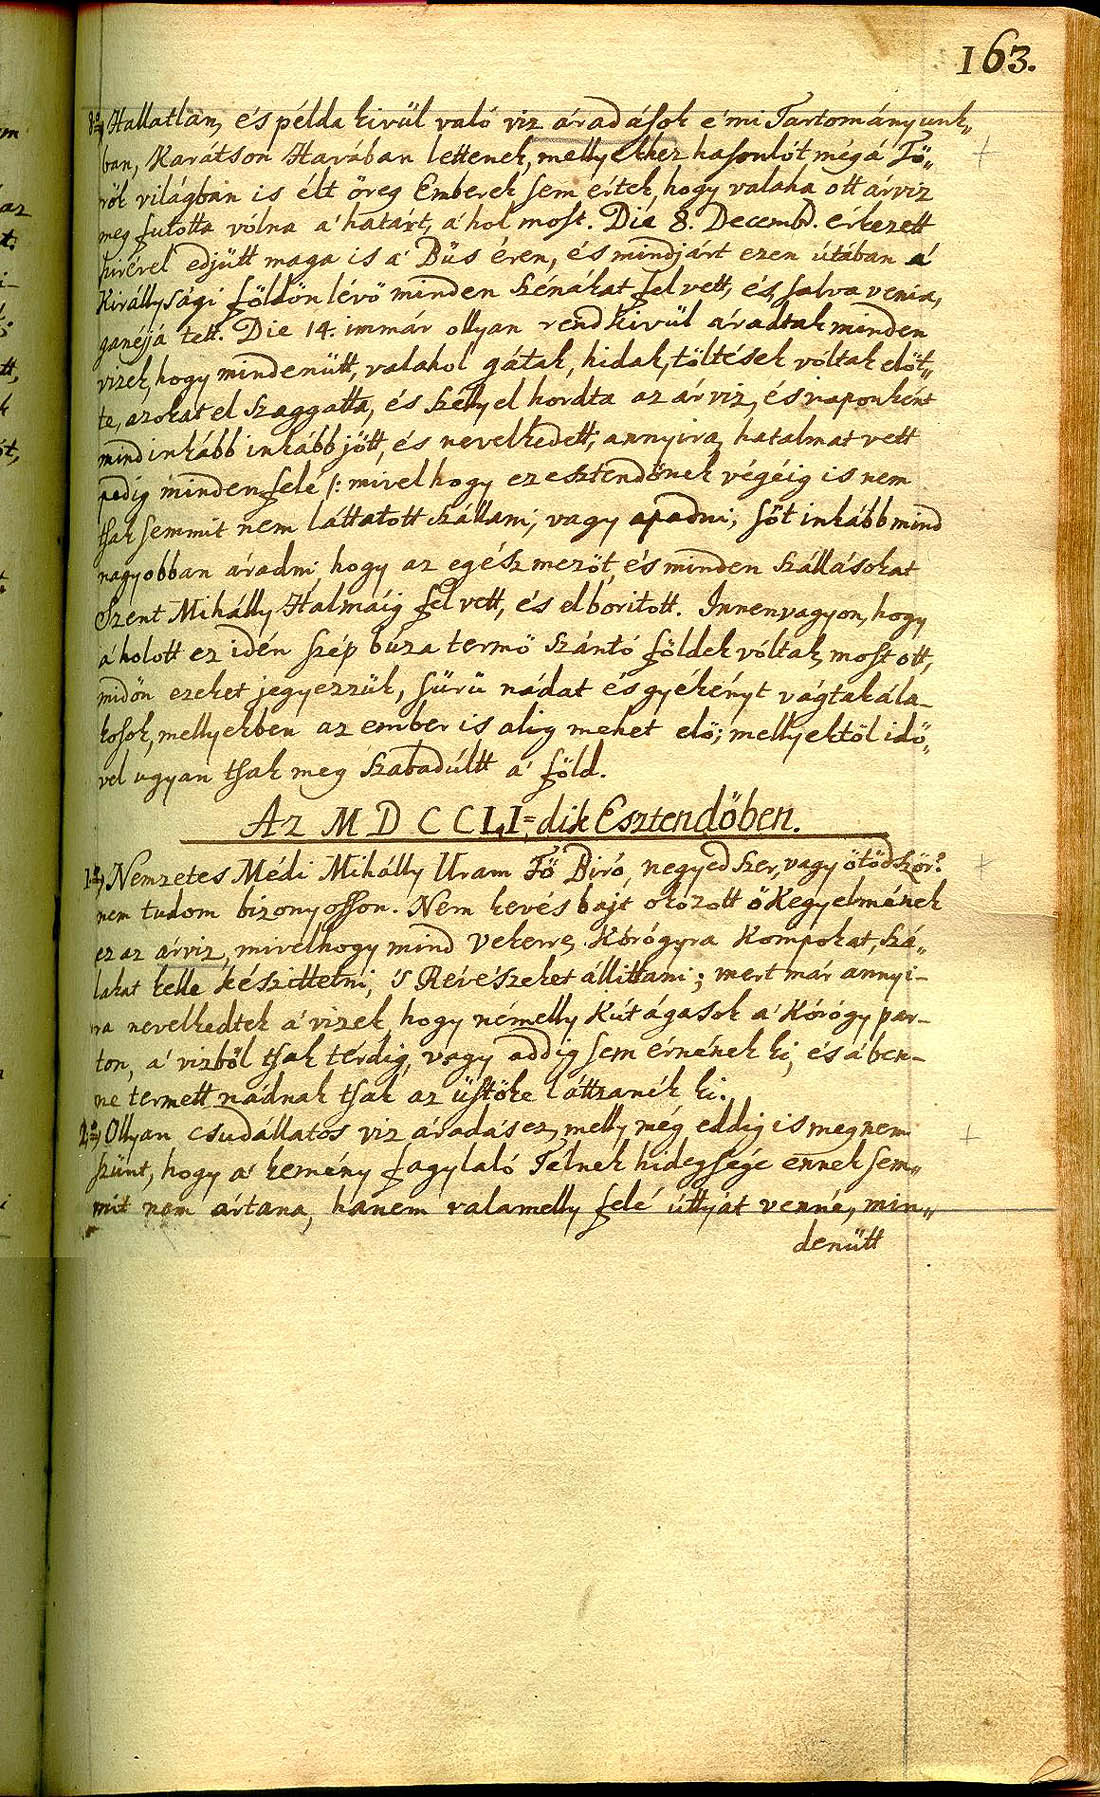 163.
8.) Hallatlan, és példa kivül való viz áradások e' mi Tartományunk„
ban, Karátson Havában lettenek, mellyekhez hasonlót még a' Tö„
rök világban is élt öreg Emberek sem értek, hogy valaha ott árviz
meg futotta vólna a' határt, a' hol most. Die 8. Decembr. érkezett
hirével edjütt maga is a' Büs éren, és mindjárt ezen útában a'
Királlysági földön lévö minden Szénákat fel vett, és, salva venia,
ganéjjá tett. Die 14. immár ollyan rend kivül áradtak minden
vizek, hogy mindenütt, valahol gátak, hidak, töltések vóltak elöt„
te, azokat el szaggatta, és széllyel hordta az árviz, és naponként
mind inkább inkább jött, és nevelkedett; annyira hatalmat vett
pedig mindenfelé /: mivelhogy ez esztendönek végéig is nem
tsak semmit nem láttatott szállani, vagy apadni, söt inkább mind
nagyobban áradni, hogy az egész mezöt, és minden Szállásokat
Szent Mihálly Halmáig fel vett, és elboritott. Innen vagyon, hogy
a' holott ez idén szép búza termö szántó földek vóltak, most ott,
midön ezeket jegyezzük, sürü nádat és gyékényt vágtak a' la-
kosok, mellyekben az ember is alig mehet elö; mellyektöl idö„
vel ugyan tsak meg szabadúltt a' föld.
Az MDCCLI=dik Esztendöben.
1.) Nemzetes Médi Mihálly Uram Fö Biró, negyedszer, vagy ötödször?
nem tudom bizonyosson. Nem kevés bajt okozott ö Kegyelmének
ez az árviz, mivelhogy mind Vekerre, Kórógyra Kompokat, Szá„
lakat kelle készittetni, 's Révészeket állittani; mert már annyi-
ra nevelkedtek a' vizek, hogy némelly Kút ágasok a' Kórógy par-
ton, a' vizböl tsak térdig, vagy addig sem érnének ki, és a' ben-
ne termett nádnak tsak az üstöke láttzanék ki.
2.) Ollyan csudállatos viz áradás ez, melly még eddig is meg nem
szünt, hogy a' kemény fagylaló Télnek hidegsége ennek sem„
mit nem ártana, hanem valamelly felé úttyát venné, min„
denütt